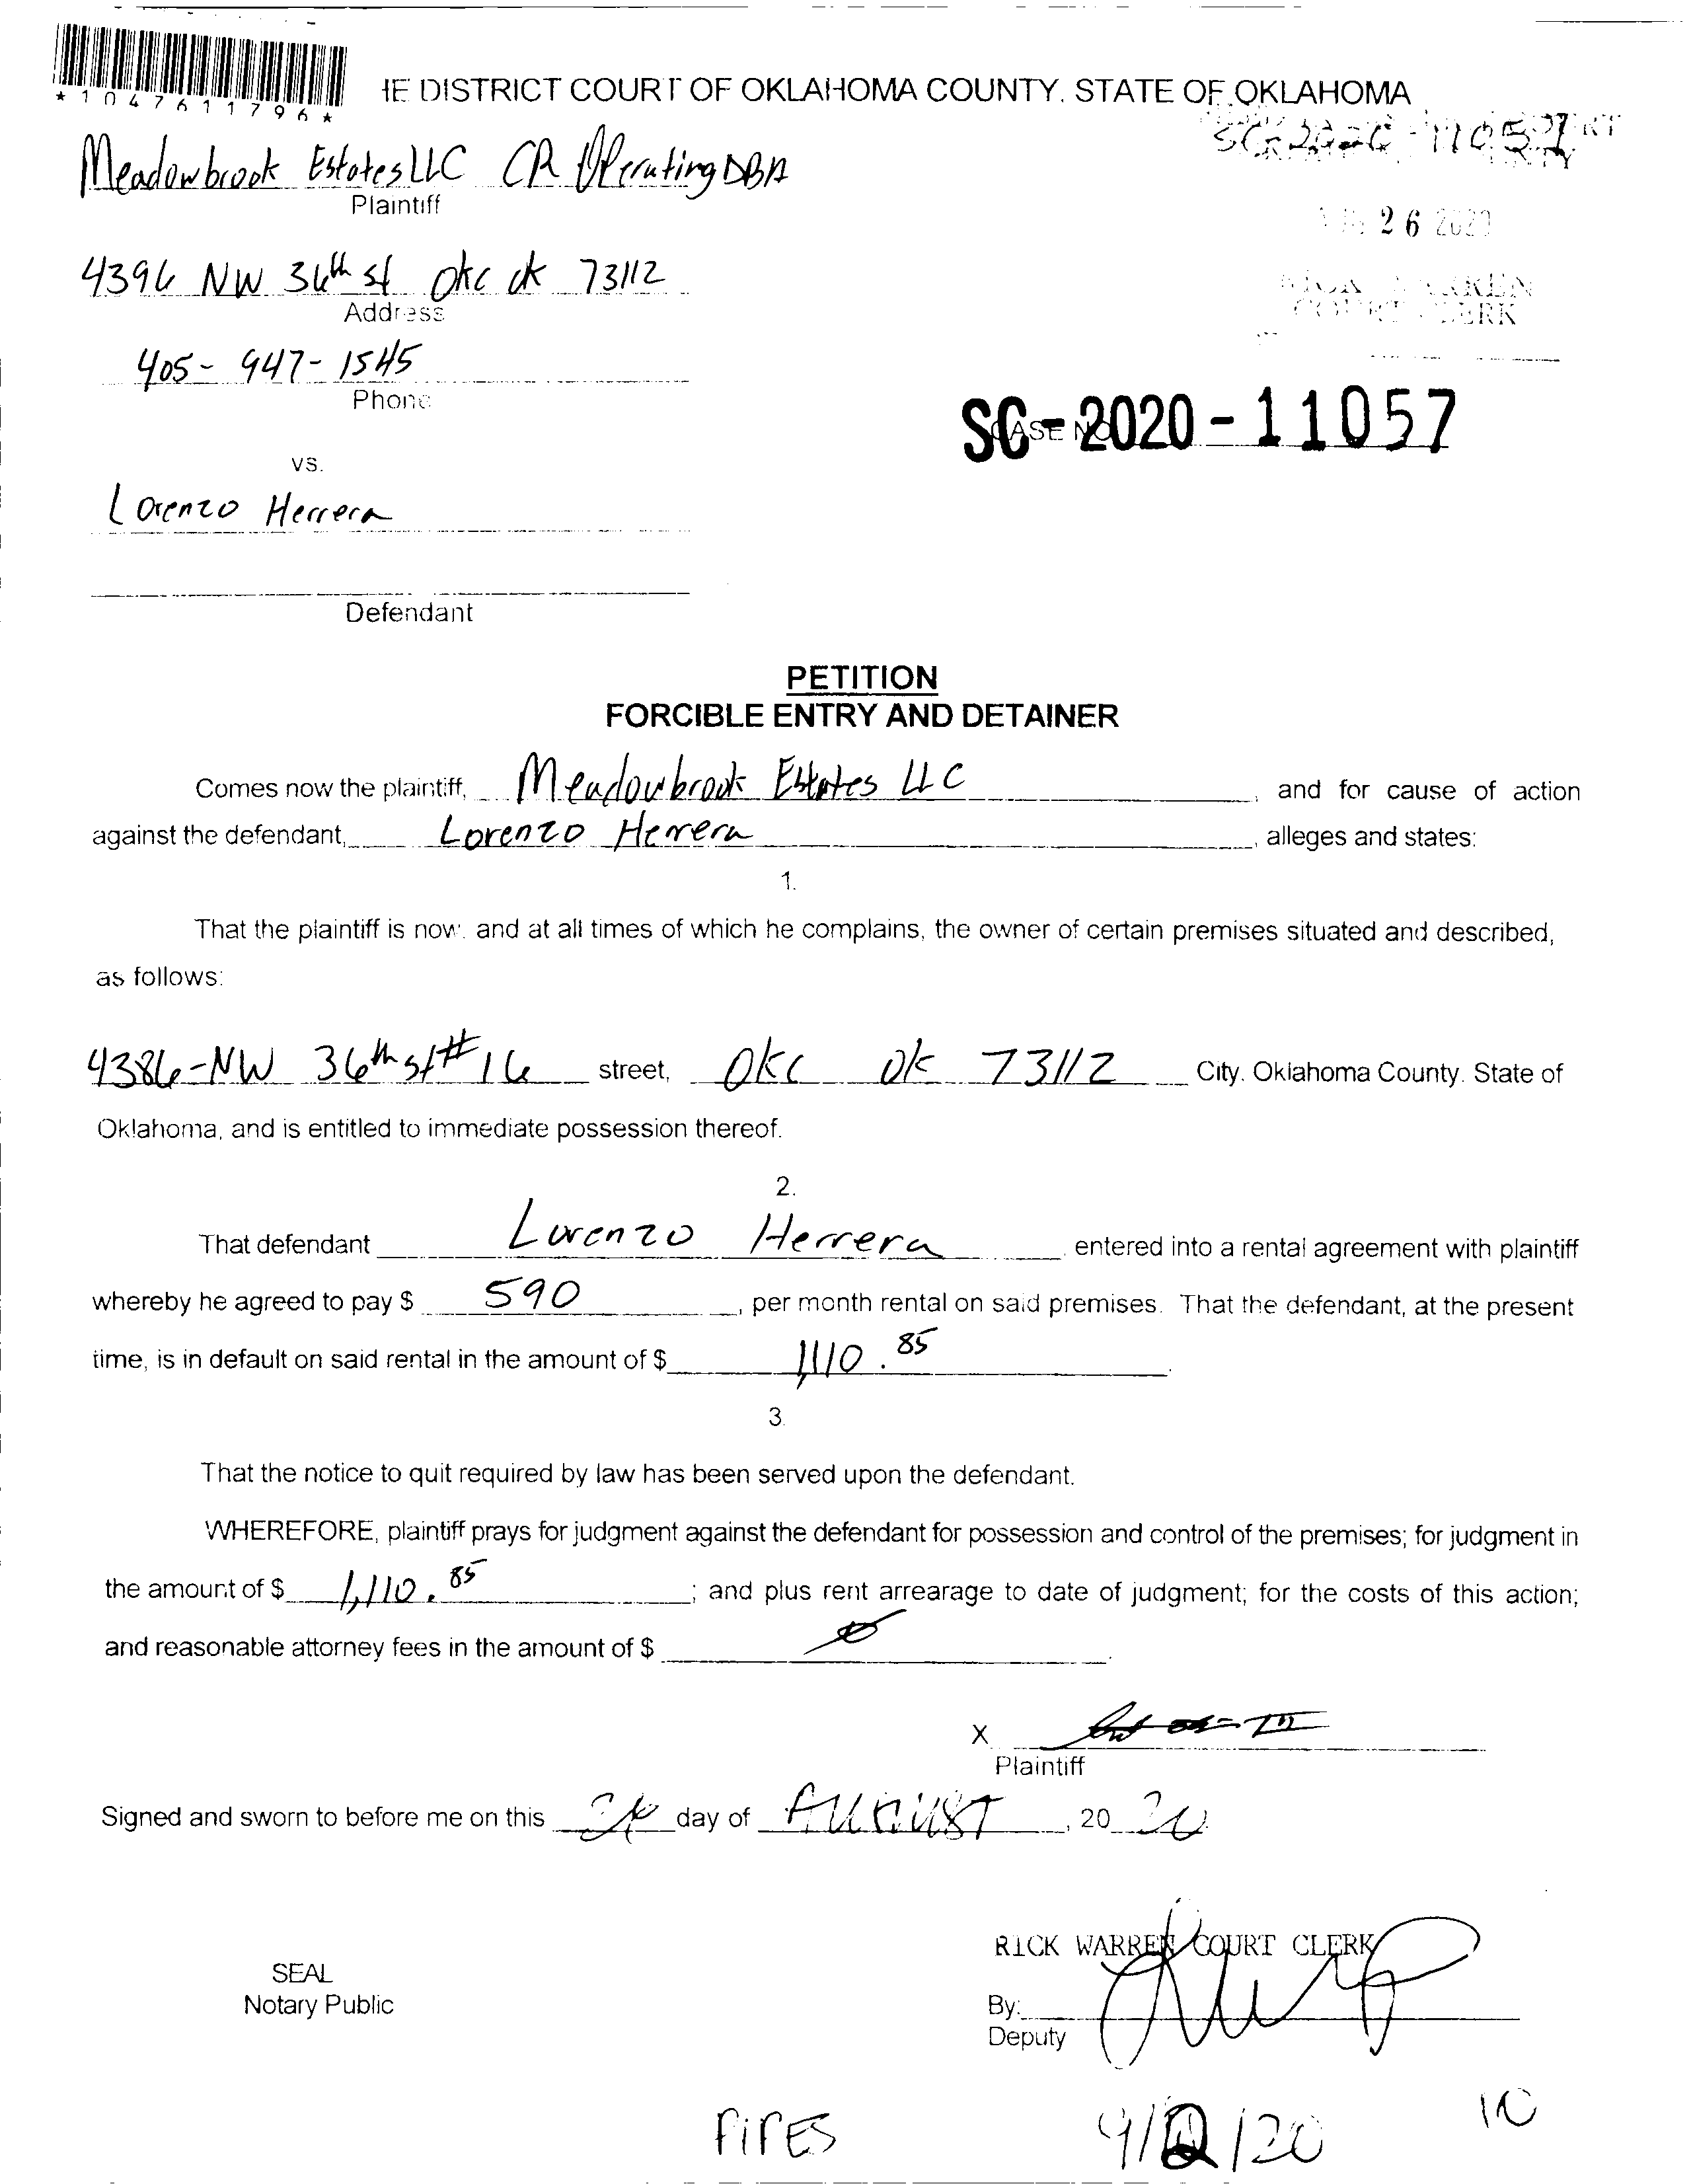 *1047611796*
IE DISTRICT COURT OF OKLAHOMA COUNTY, STATE OF OKLAHOMA
Meadowbrook Estates LLC CR Operating DBA
Plaintiff
26 2020
4396 NW 36th st okc ok 73112
Address
COURT CLERK
405-947-1545
Phone
SC-2020-11057
CASE NO
vs.
Lorenzo Herrera
Defendant
PETITION
FORCIBLE ENTRY AND DETAINER
Comes now the plaintiff, Meadowbrook Estates LLC, and for cause of action
against the defendant, Lorenzo Herrera, alleges and states:
1.
That the plaintiff is now, and at all times of which he complains, the owner of certain premises situated and described,
as follows:
4386-NW 36th st #16 street, OKC OK 73112 City, Oklahoma County, State of
Oklahoma, and is entitled to immediate possession thereof.
2.
That defendant Lorenzo Herrera entered into a rental agreement with plaintiff
whereby he agreed to pay $ 590, per month rental on said premises. That the defendant, at the present
time, is in default on said rental in the amount of $ 1,110.85.
3.
That the notice to quit required by law has been served upon the defendant.
WHEREFORE, plaintiff prays for judgment against the defendant for possession and control of the premises; for judgment in
the amount of $ 1,110.85; and plus rent arrearage to date of judgment; for the costs of this action;
and reasonable attorney fees in the amount of $
X
Plaintiff
Signed and sworn to before me on this 26 day of August, 20 20
RICK WARREN COURT CLERK
SEAL
Notary Public
By:
Deputy
PIPES